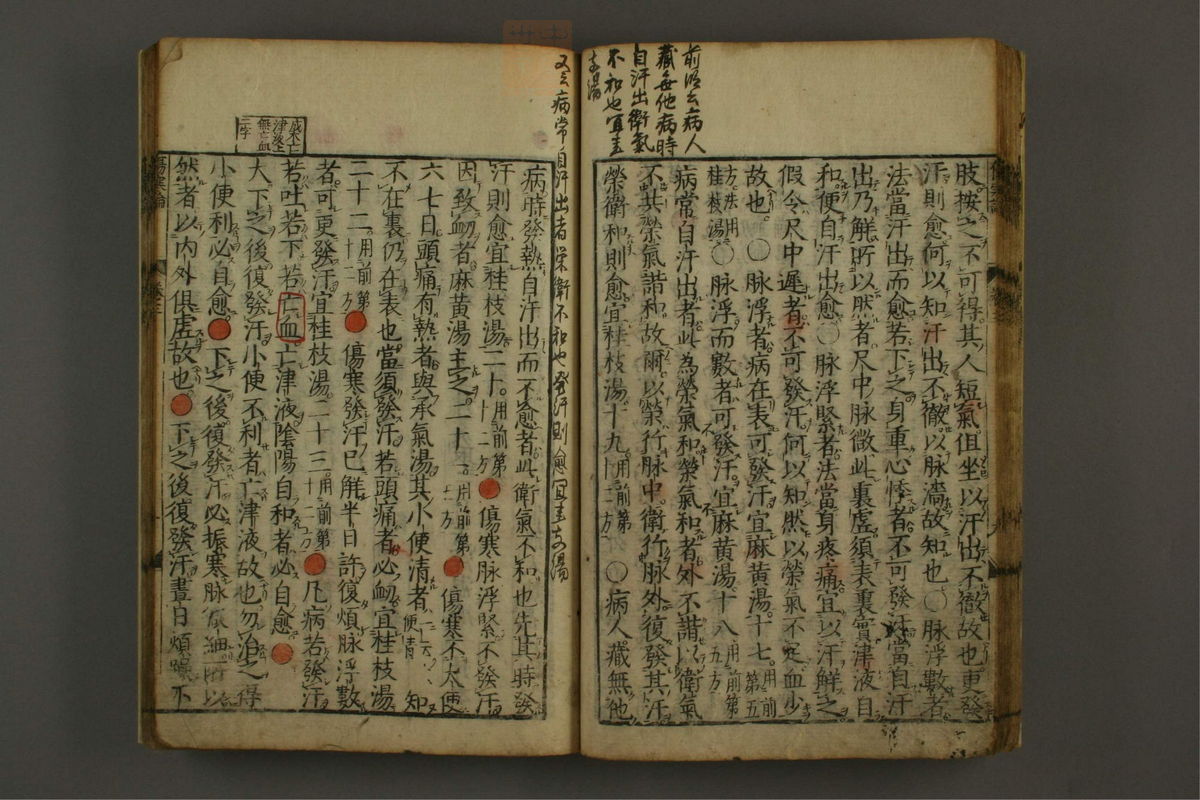 前治云病人
藏無他病時
自汗出衛氣
不和也宜圭
支湯
肢按之不可得其人短氣但坐以汗出不徹故也更發
汗則愈何以知汗出不徹以脉濇故知也〇脉浮數者
法當汗出而愈若下之身重心悸者不可發汗當自汗
出乃解所以然者尺中脉微此裏虛須表裏實津液自
和便自汗出愈〇脉浮緊者法當身疼痛宜以汗解之
假令尺中遲者不可發汗何以知然以榮氣不足血少
故也〇脉浮者病在表可發汗宜麻黄湯十七用前第五
方法用桂枝湯〇脉浮而數者可發汗宜麻黄湯十八用前第五方
病常自汗出者此為榮氣和榮氣和者外不諧以衛氣
不共榮氣諧和故爾以榮行脉中衛行脉外復發其汗
榮衛和則愈宜桂枝湯十九用前第十二方〇病人藏無他
又云病常自汗出者榮衛不和也發汗則愈宜圭支湯
病時發熱自汗出而不愈者此衛氣不和也先其時發
汗則愈宜桂枝湯二十用前第十二方傷寒脉浮緊不發汗
因致衂者麻黄湯主之二十一用前第五方傷寒不大便
六七日頭痛有熱者與承氣湯其小便清者一云大便青知
不在裏仍在表也當須發汗若頭痛者必衂宜桂枝湯
二十二用前第十二方傷寒發汗已解半日許復煩脉浮數
者可更發汗宜桂枝湯二十三用前第十二方凡病若發汗
若吐若下若亡血亡津液陰陽自和者必自愈
大下之後復發汗小便不利者亡津液故也勿治之得
小便利必自愈下之後復發汗必振寒脉微細所以
然者以内外俱虛故也下之後復發汗晝日煩躁不
成本亡
津液上
無亡血
二字
傷寒論
卷三